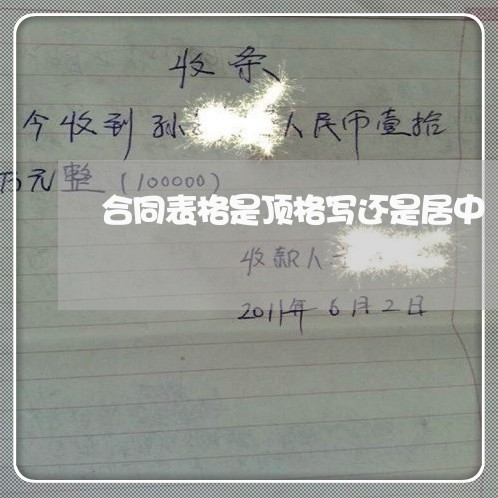 收条
今收到孙 人民币壹拾
万元整(100000)
合同表格是顶格写还是居中
收款人
2011年6月2日